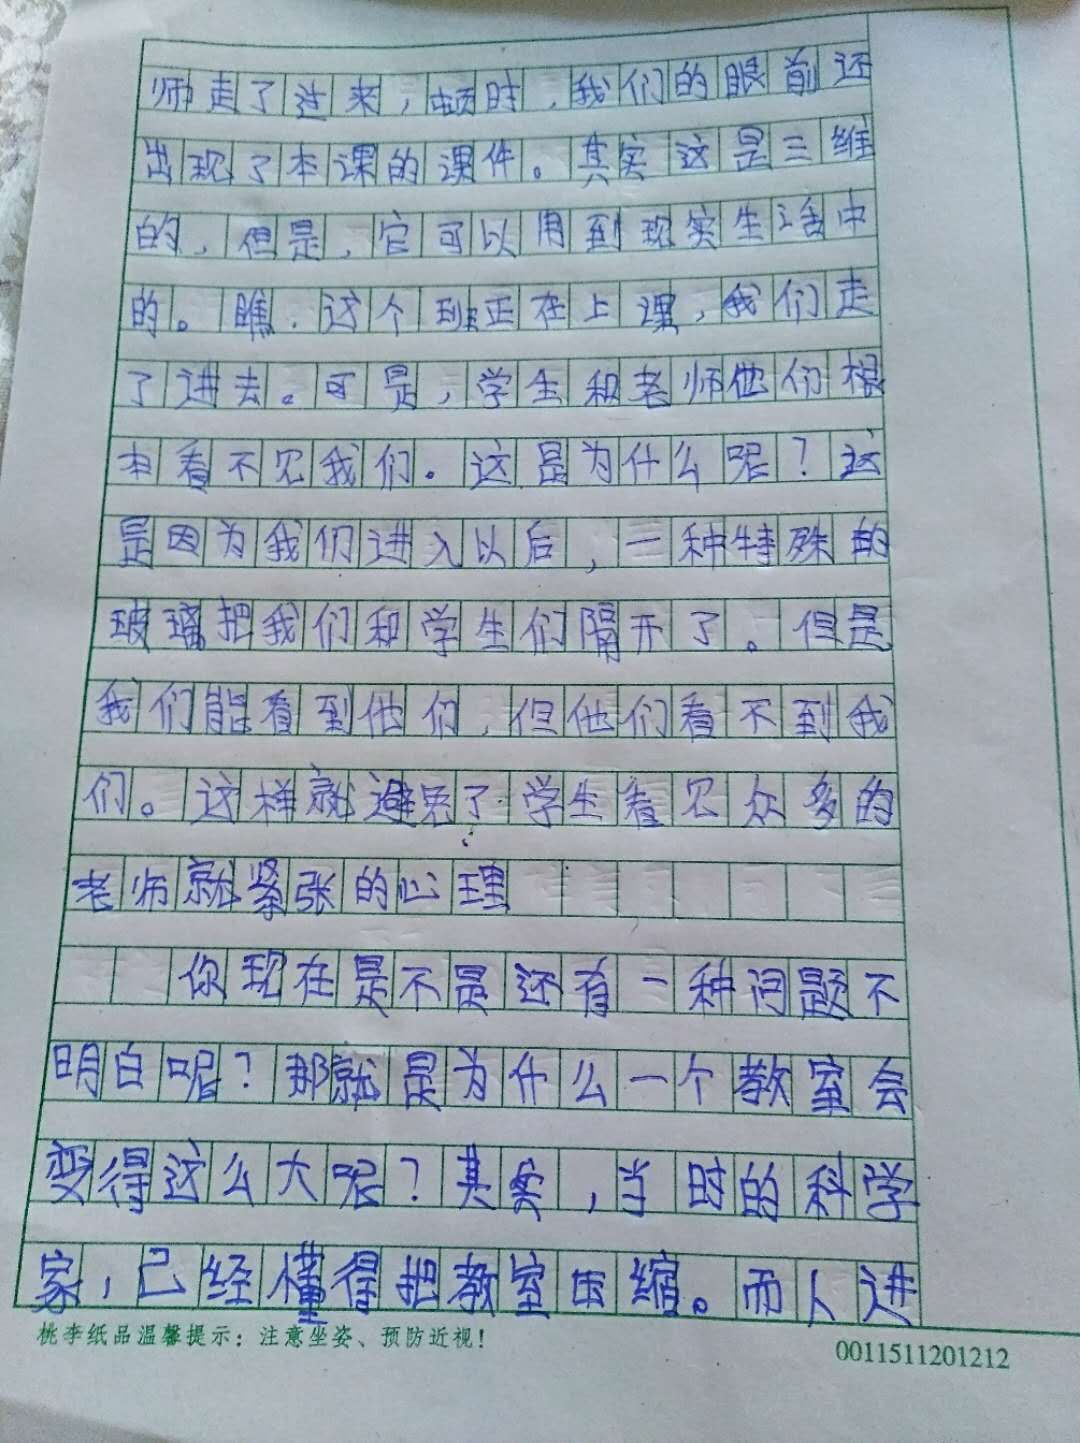 师走了过来，顿时，我们的眼前还
出现了本课的课件。其实这是三维
的，但是，它可以用到现实生活中
的。瞧，这个班正在上课，我们走
了进去。可是，学生和老师他们根
本看不见我们。这是为什么呢？这
是因为我们进入以后，一种特殊的
玻璃把我们和学生们隔开了。但是
我们能看到他们，但他们看不到我
们。这样就避免了学生看见众多的
老师就紧张的心理
你现在是不是还有一种问题不
明白呢？那就是为什么一个教室会
变得这么大呢？其实，当时的科学
家，已经懂得把教室压缩。而人进
桃李纸品温馨提示：注意坐姿、预防近视！
0011511201212